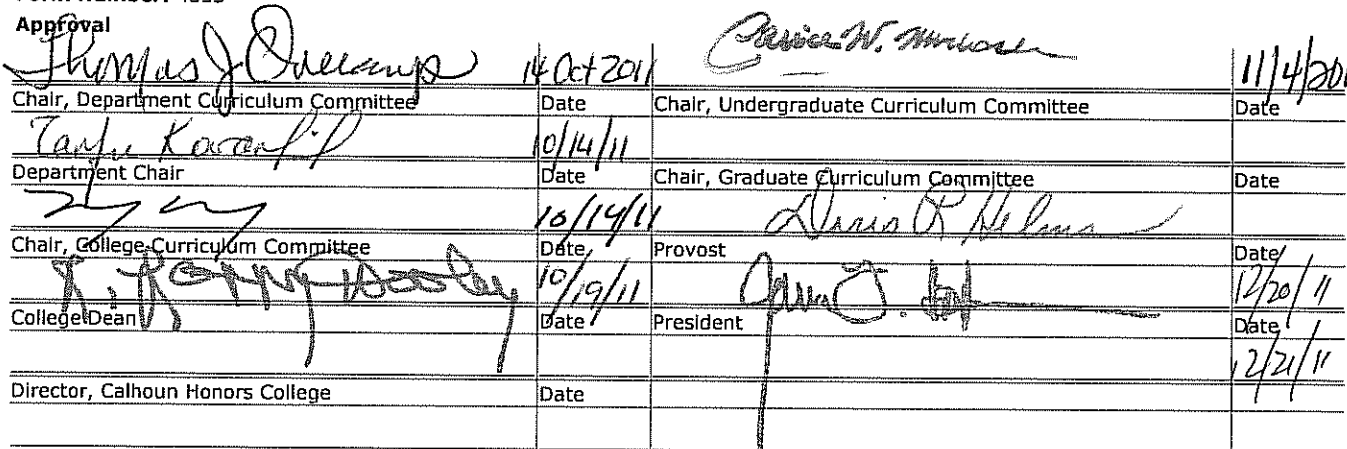 Approval
Thomas J Overcamp 14 Oct 2011 11/4/20
Chair, Department Curriculum Committee Date Chair, Undergraduate Curriculum Committee Date
Tanju Karanfil 10/14/11
Department Chair Date Chair, Graduate Curriculum Committee Date
10/14/11 Doris R Helms
Chair, College Curriculum Committee Date Provost Date
10/19/11 12/20/11
College Dean Date President Date
12/21/11
Director, Calhoun Honors College Date